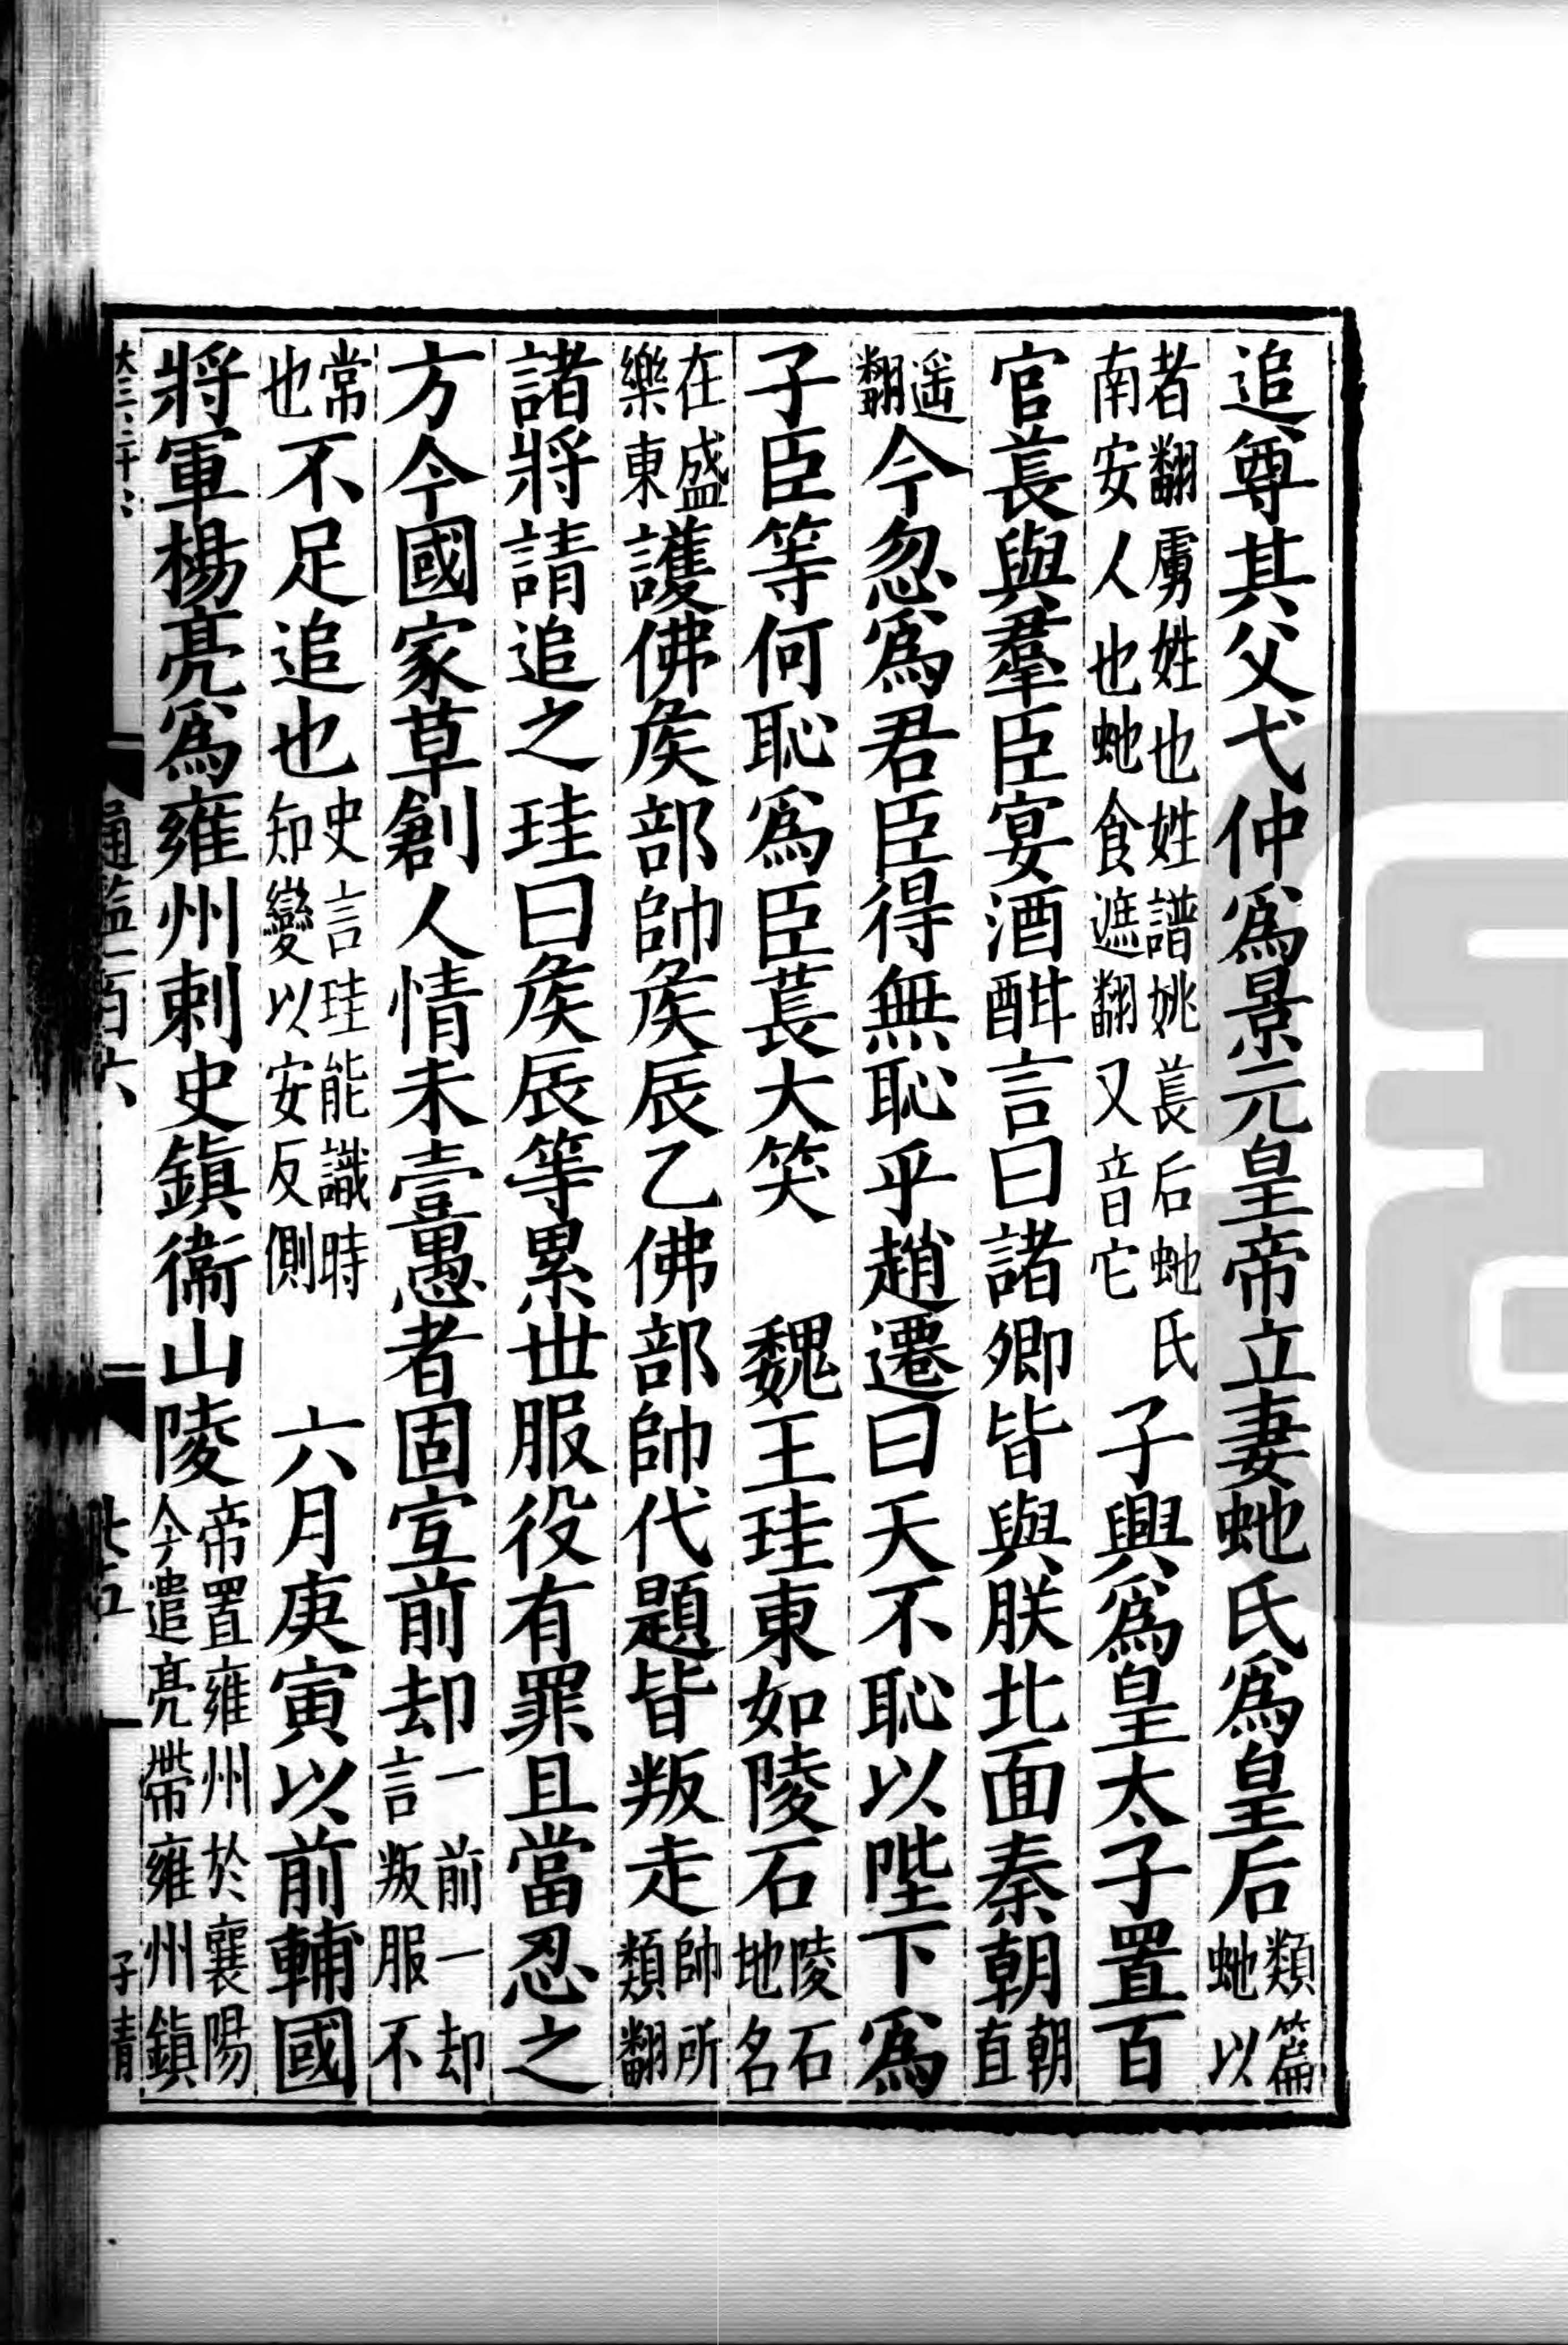 追尊其父弋仲爲景元皇帝立妻虵氏爲皇后類篇虵以
者翻虜姓也姓譜姚萇后虵氏南安人也虵食遮翻又音它子興爲皇太子置百
官萇與羣臣宴酒酣言曰諸卿皆與朕北面秦朝朝直
遥翻今忽爲君臣得無恥乎趙遷曰天不恥以陛下爲
子臣等何恥爲臣萇大笑　魏王珪東如陵石陵石地名
在盛樂東護佛矦部帥矦辰乙佛部帥代題皆叛走帥所類翻
諸將請追之珪曰矦辰等累世服役有罪且當忍之
方今國家草創人情未壹愚者固宜前却一前一却言叛服不
常也不足追也史言珪能識時知變以安反側　六月庚寅以前輔國
將軍楊亮爲雍州刺史鎮衞山陵帝置雍州於襄陽今遣亮帶雍州鎮
通鑑一百六